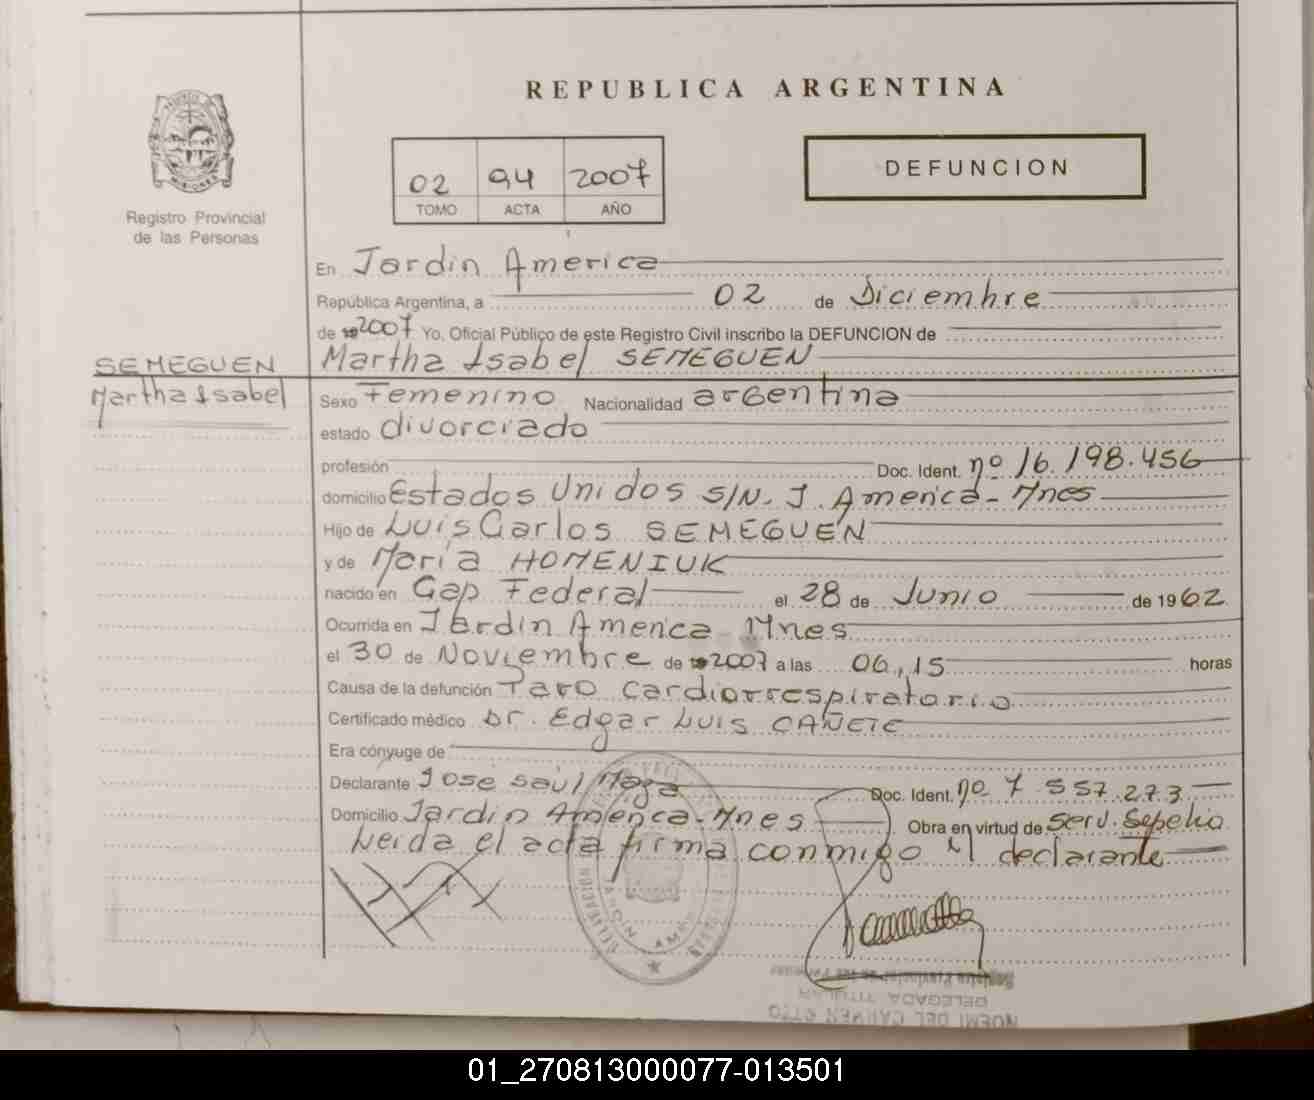 REPUBLICA ARGENTINA
DEFUNCION
02 94 2007
TOMO ACTA AÑO
Registro Provincial
de las Personas
En Jardin America
República Argentina, a 02 de Diciembre
de 2007 Yo, Oficial Público de este Registro Civil inscribo la DEFUNCION de
SEMEGUEN
Martha Isabel
Martha Isabel SEMEGUEN
Sexo Femenino Nacionalidad argentina
estado divorciado
profesión Doc. Ident. nº 16.198.456
domicilio Estados Unidos S/N. J. America-Mnes
Hijo de Luis Carlos SEMEGUEN
y de Maria HOMENIUK
nacido en Cap Federal el 28 de Junio de 1962
Ocurrida en Jardin America Mnes
el 30 de Noviembre de 2007 a las 06,15 horas
Causa de la defunción Paro cardiorrespiratorio
Certificado médico Dr. Edgar Luis CAÑETE
Era cónyuge de
Declarante Jose Saul Doc. Ident. nº 7 557.273
Domicilio Jardin America-Mnes Obra en virtud de Serv. Sepelio
Leida el acta firma conmigo el declarante
DELEGADA TITULAR
NOEMI DEL CARMEN OTTO
01_270813000077-013501